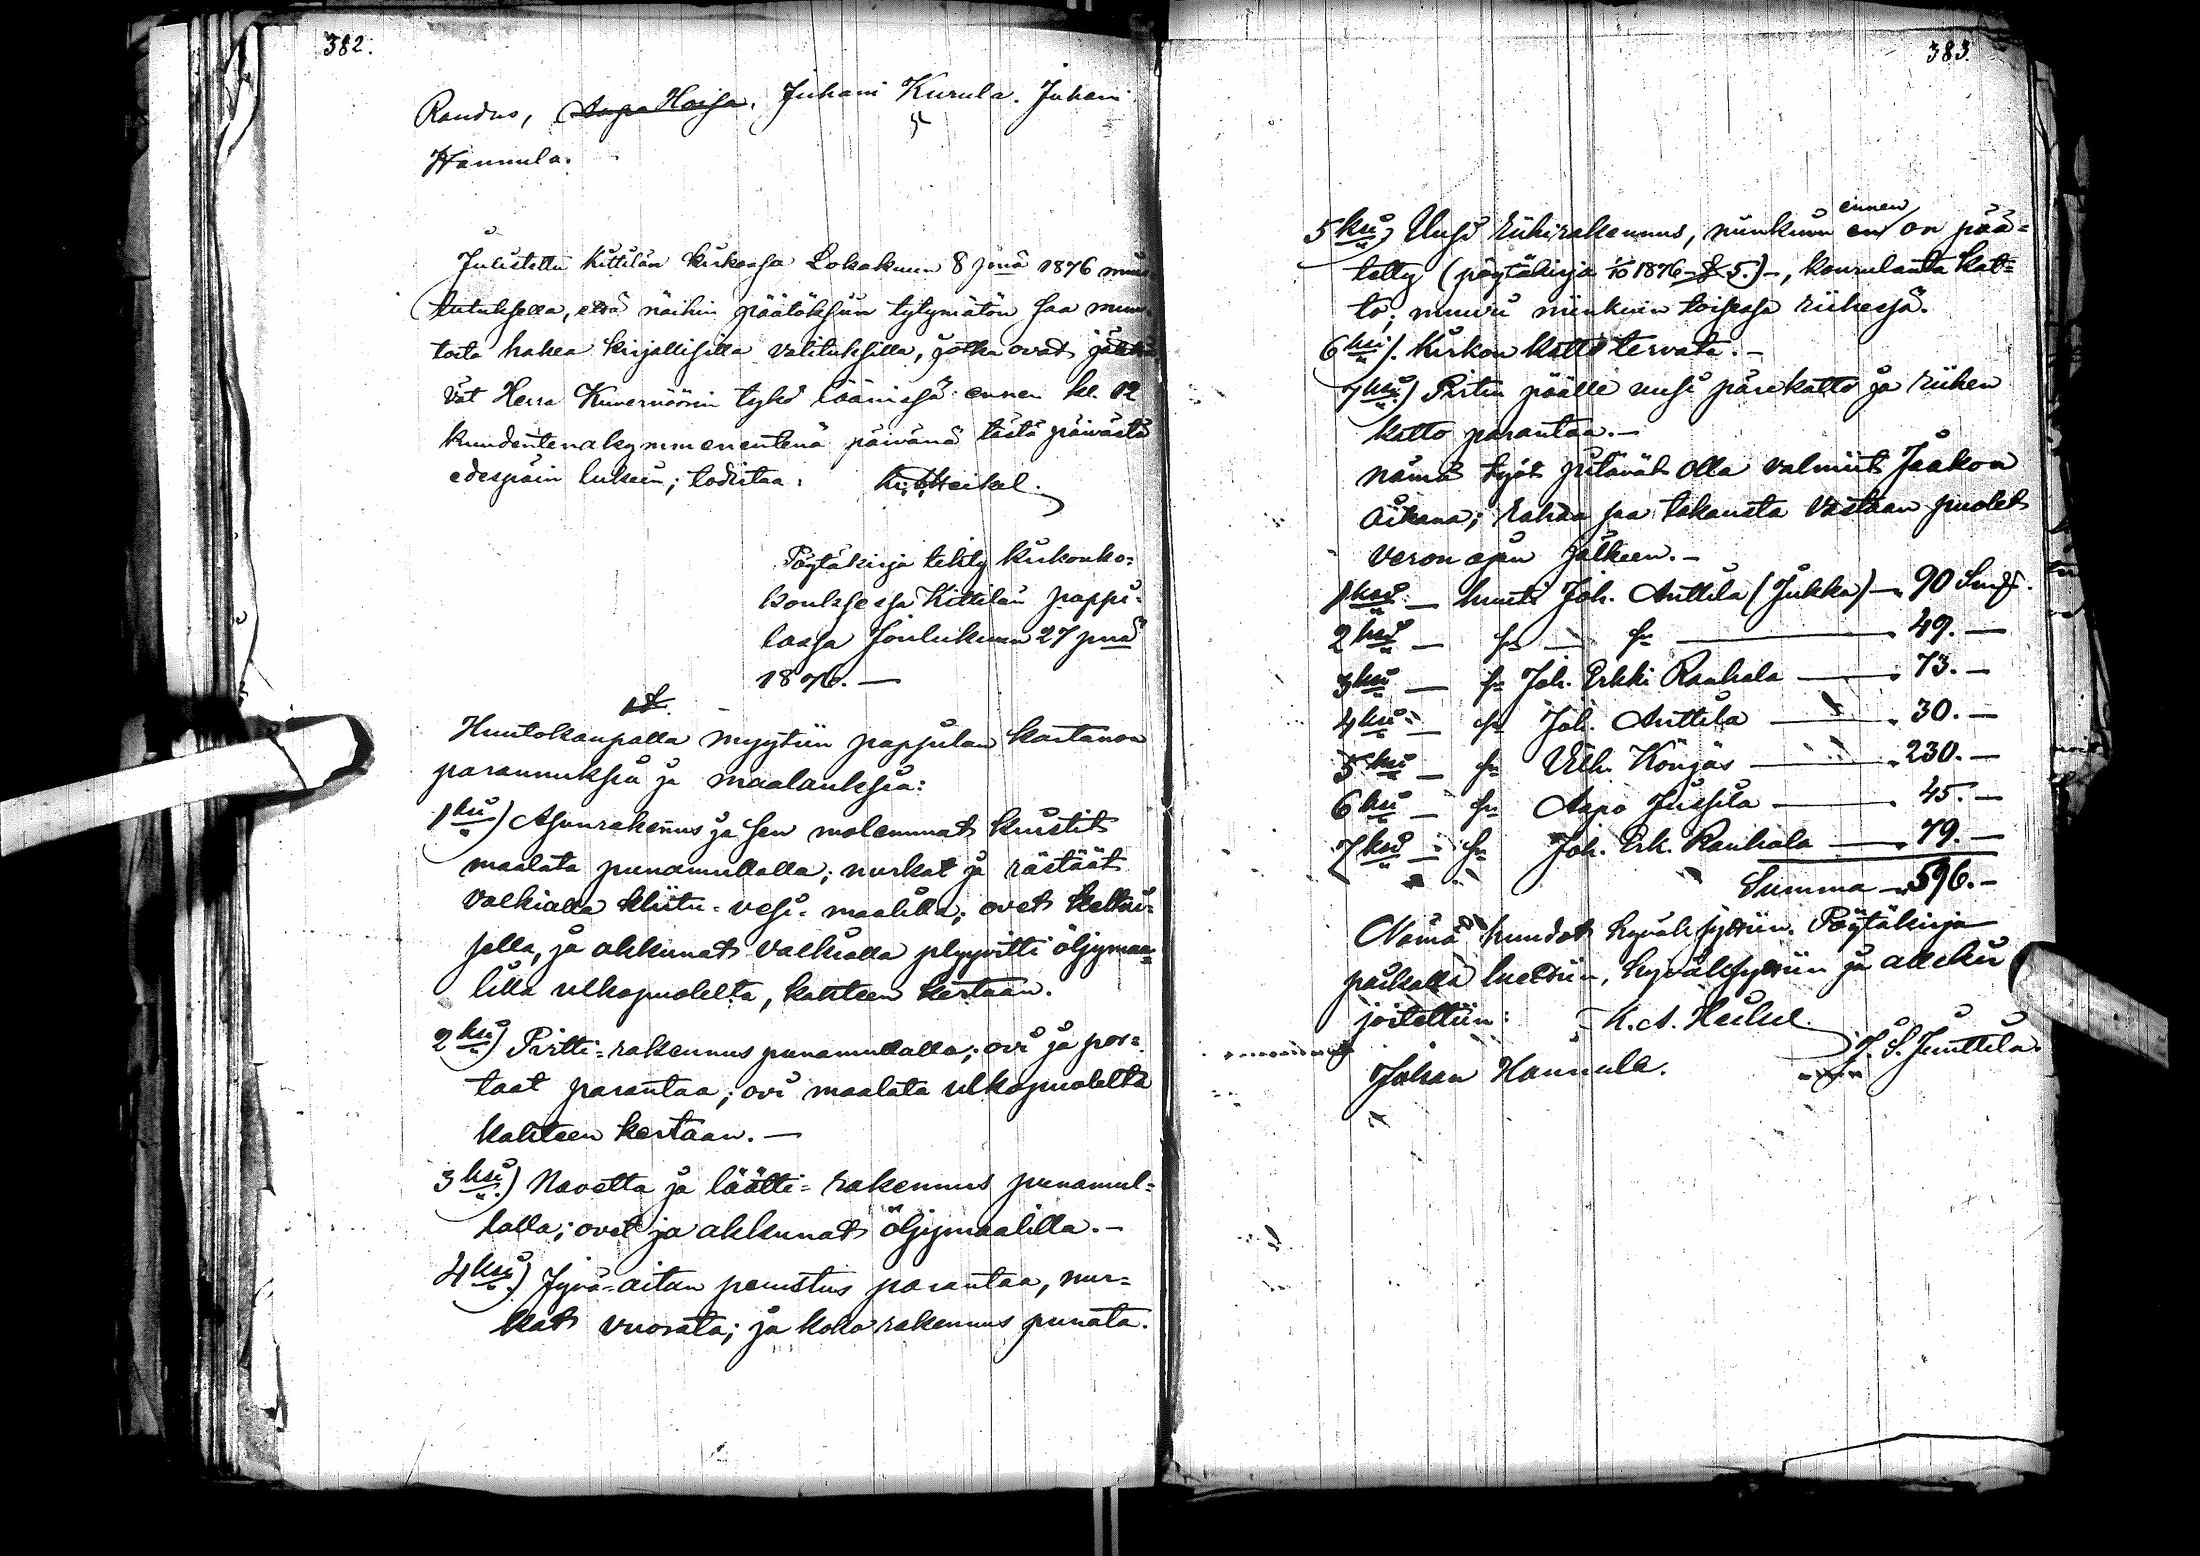 382.
Raudus, Aapo Haisa, Juhani Kurula. Juhani
Hannula.
Julistettu Kittilän kirkossa Lokakuun 8 p:nä 1876 muis
tutuksella, että näihin päätöksiin tytymätön saa muu-
tosta hakea kirjallisilla valituksilla, jotka ovat jätettä
vät Herra Kuvernöörin tykö läänissä ennen kl. 12
kuudentenakymmenentenä päivänä tästä päivästä
edespäin lukein; todistaa: K. A. Heikel.
Pöytäkirja tehty kirkonko-
kouksessa Kittilän pappi-
lassa Joulukuun 27 p:nä
1876. —
1 §.
Huutokaupalla myytiin pappilan kartanon
parannuksia ja maalauksia:
1ksi) Asuinrakennus ja sen molemmat kuistit
maalata punamullalla; nurkat ja rästäät
valkialla kliitu-vesi-maalilla; ovet keltai-
sella, ja akkunat valkialla plyyvitti öljymaa-
lilla ulkopuolelta, kahteen kertaan.
2ksi) Pirtti-rakennus punamullalla; ovi ja por-
taat parantaa; ovi maalata ulkopuolelta
kahteen kertaan. —
3ksi) Navetta ja läätti-rakennus punamul-
lalla; ovet ja akkunat öljymaalilla. —
4ksi) Jyvä-aitan perustus parantaa, nur-
kat vuorata; ja koko rakennus punata.
383.
5ksi) Uusi riihirakennus, niinkuin en ennen on pää-
tetty (pöytäkirja 1/10 1876 § 5.) —, kourulauta kat-
to; muuri niinkuin toisessa riihessä.
6ksi). Kirkon katto tervata. —
7ksi) Pirtin päälle uusi pärekatto ja riihen
katto parantaa. —
Nämä työt pitävät olla valmiit Jaakon
aikana; rahaa saa takausta vastaan puolet
veron ajan jälkeen. —
1ksi — huuti Joh. Anttila (Jukka) — 90 Smf.
2ksi — sn — sn — 49. —
3ksi — sn Joh. Erkki Rauhala — 73. —
4ksi — sn Joh. Anttila — 30. —
5ksi — sn Vilh. Köngäs — 230. —
6ksi — sn Aapo Jussila — 45. —
7ksi — sn Joh. Erk. Rauhala — 79. —
Summa — 596. —
Nämä huudot hyväksyttiin. Pöytäkirja
paikalla luettiin, hyväksyttiin ja alleki
joitettiin: K. A. Heikel.
Johan Hannula. J. S. Junttila.